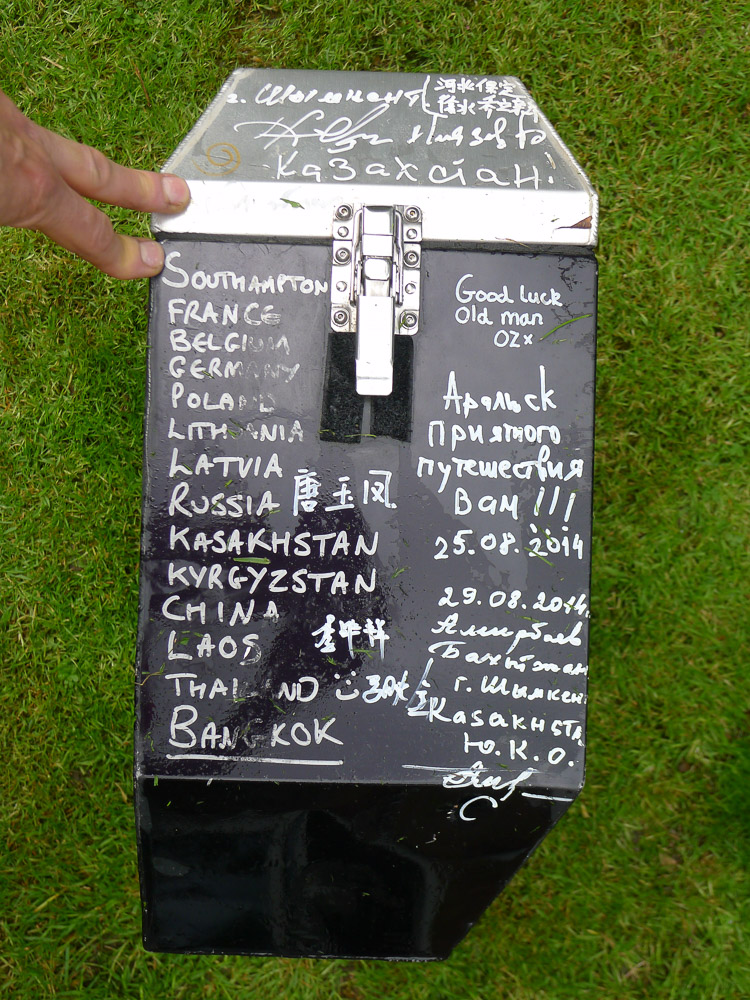 г. Шымкент
河北保定
Казахстан!
SOUTHAMPTON
FRANCE
BELGIUM
GERMANY
POLAND
LITHUANIA
LATVIA
RUSSIA 唐玉凤
KASAKHSTAN
KYRGYZSTAN
CHINA
LAOS
THAILAND
BANGKOK
Good luck
Old man
OZx
Аральск
Приятного
путешествия
Вам !!!
25.08.2014
29.08.2014.
Амирбаев
Бахытжан
г. Шымкен
Kasakhsta
Ю.К.О.